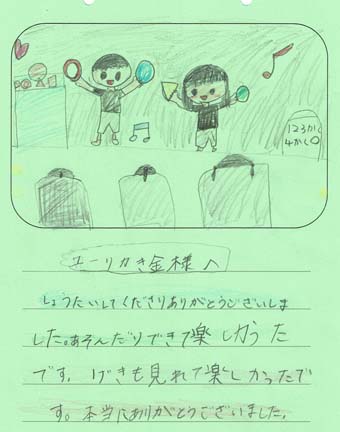 123かく
4かく〇
ユーリカき金様へ
しょうたいしてくださりありがとうございしま
した。あそんだりできて楽しかった
です。げきも見れて楽しかったで
す。本当にありがとうございました。